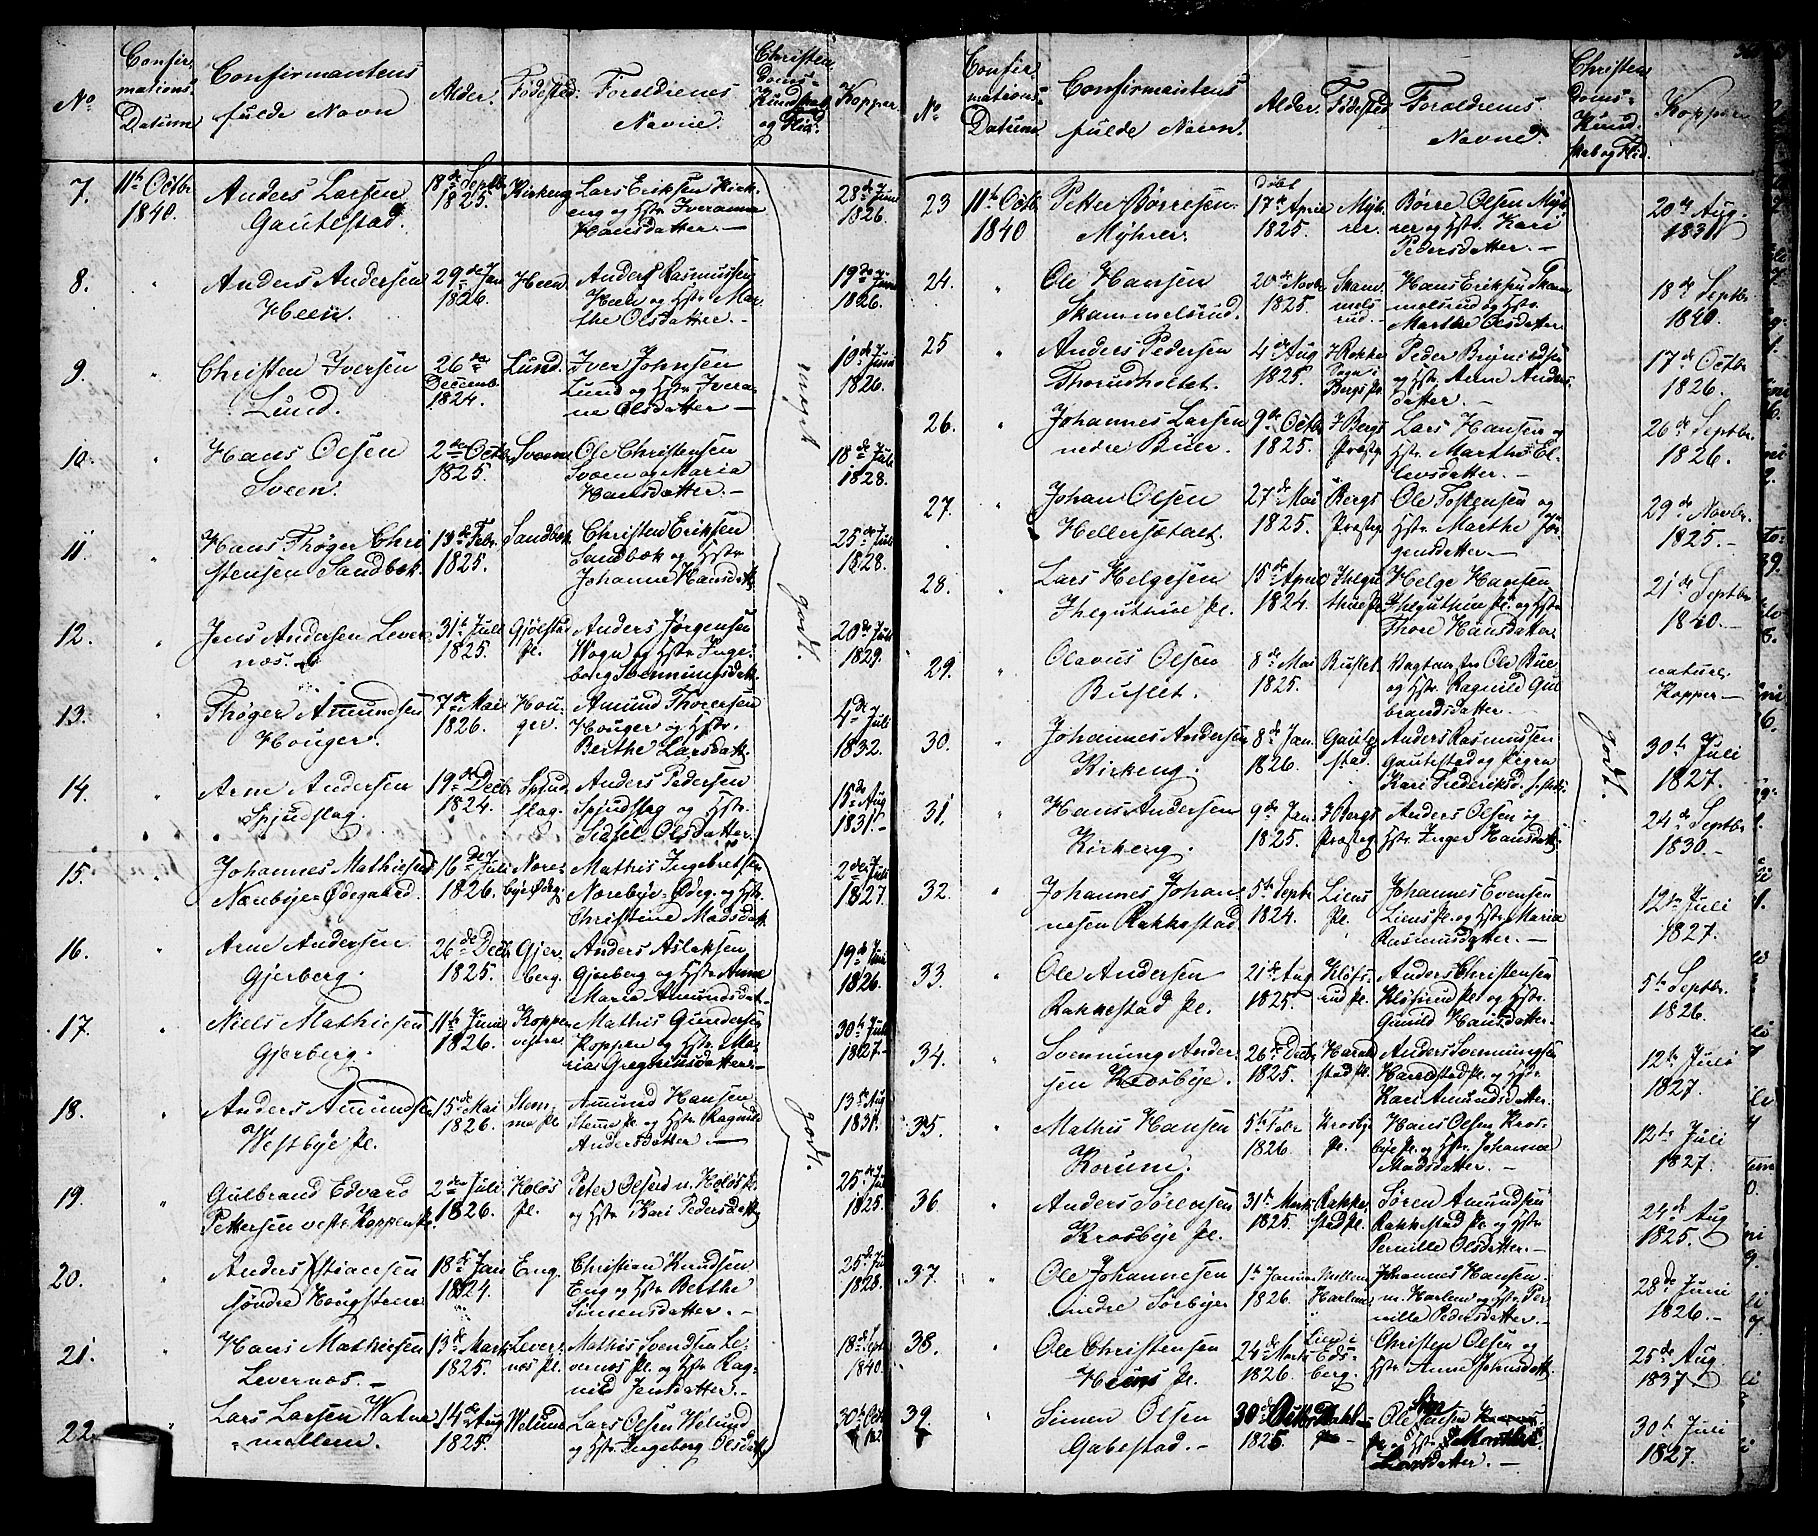 No
Confir
mations
Datum
Confirmantens
fulde Navn
Alder.
Fødested.
Forældrenes
Navne.
Christen
doms-
Kundskab
og Flid.
Kopper.
7.
11te Octbr
1840.
Anders Larsen
Gautestad.
18de Septb
1825.
Kirkeng
Lars Eriksen Kirk-
eng og Hstr
Hansdatter.
28de Juni
1826.
8.
Anders Andersen
Heen.
29de Jan
1826.
Heen
Anders Rasmussen
Heen og Hstr Mar-
the Olsdatter.
19de Juni
1826.
9.
Christen Iversen
Lund.
26de
Decemb.
1824.
Lund.
Iver Johnsen
Lund og Hstr Ivera-
ne Olsdatter
10de Juni
1826.
meget
godt
10.
Hans Olsen
Sveen.
2den Octbr
1825.
Sveen
Ole Christensen
Sveen og Maria
Hansdatter.
18de Juli
1828.
11.
Hans Thøger Chri
stensen Sandbæk
13de Febr.
1825.
Sandbæk
Christen Eriksen
Sandbæk og Hstr
Johanne Hansdatt
25de Juli
1828.
12.
Jens Andersen Lever
næs.
31te Juli
1825.
Gjølstad
pl.
Anders Jørgensen
Wogn og Hstr Inge-
borg Svenningsdatt.
20de Juli
1829.
13.
Thøger Amundsen
Houger.
7de Mai
1826.
Hou-
ger.
Amund Thoresen
Houger og Hstr.
Berthe Larsdatt.
4de Juli
1832.
14.
Arne Andersen
Spjudslag.
19de Decbr
1824.
Spjud
slag.
Anders Pedersen
Spjudslag og Hstr.
Sidsel Olsdatter.
15de Aug
1831.
15.
Johannes Mathiesen
Nærebye Ødegaard.
16de Juli
1826.
Nære-
bye Ødeg.
Mathis Ingebretsen
Nærebye Ødeg. og Hstr.
Christine Madsdatt.
2den Juli
1827.
16.
Arne Andersen
Gjerberg.
26de Decb
1825.
Gjer-
berg.
Anders Aslaksen
Gjerberg og Hstr Anne
Maria Amundsdat.
19de Juni
1826.
17.
Niels Mathiesen
Gjerberg.
11te Juni
1826.
Koppen
vestre
Mathis Gundersen
Koppen og Hstr. Ma-
ria Gregoriusdatter.
30te Juli
1827.
godt.
18.
Anders Amundsen
Westbye pl.
15de Mai
1826.
Stem-
me pl.
Amund Hansen
Stemme pl. og Hstr Ragnild
Andersdatter.
13de Aug
1831.
19.
Gulbrand Edvard
Pettersen vestr. Koppen pl.
2den Juli
1826.
Holøs
pl.
Peter Olsen n. Holøs pl.
og Hstr Kari Pedersdatt.
25de Juli
1825.
20.
Anders Xstiansen
søndre Hougsteen
18de Jan
1824.
Eng.
Christian Knudsen
Eng og Hstr Berthe
Simensdatter.
25de Juli
1828.
21.
Hans Mathiesen
Levernæs.
13de Marts
1825.
Lever-
næs pl.
Mathis Svendsen Le-
vernæs pl. og Hstr Rag-
nild Jensdatter.
18de Sept
1840.
22.
Lars Larsen Watne
mellem.
14de Aug
1825.
Welund
Lars Olsen Welund
og Hstr Ingeborg Olsdatt
30te Oct
No
Confir
mations-
Datum
Confirmantens
fulde Navn.
Alder.
Fødested
Forældrenes
Navne.
Christen
doms-
Kund-
skab og Flid.
Kopper
23
11te Octb.
1840
Petter Børresen
Myhrer.
døbt
17de April
1825.
Myh-
rer.
Børre Olsen Myh-
rer og Hstr. Kari
Pedersdatter.
20de Aug.
1831
24.
Ole Hansen
Skammelsrud.
20de Novbr
1825.
Skam-
mels
rud.
Hans Eriksen Skam
melsrud og Hstr.
Marthe Olsdatter
18de Septbr.
1840.
25
Anders Pedersen
Thorudholtet.
4de Aug
1825.
I Rakke
Sogn i
Bergs pr.
Peder Brynildsen
og Hstr. Anne Anders
datter.
17de Octbr
1826.
26.
Johannes Larsen
nedre Buer.
9de Octbr
1825.
I Bergs
Præstg.
Lars Hansen og
Hstr. Marthe El-
levsdatter.
26de Septbr.
1826.
27.
Johan Olsen
Hellersætalt.
27de Mai
1825.
Bergs
Præstg.
Ole Tostensen og
Hstr. Marthe Jør-
gensdatter.
29de Novbr.
1825.
28.
Lars Helgesen
Ihleguthue pl.
15de April
1824.
Helge Hansen
Thore Hansdatter
21de Septbr
1840.
29.
Olavus Olsen
Buslet.
8de Mai
1825.
Buslet.
Ole Bue
og Hstr. Ragnild Gul
brandsdatter.
nature.
Kopper
30.
Johannes Andersen
Kirkeng.
8de Jan.
1826.
Gaute-
stad.
Anders Rasmussen
Gautestad og Pigen
Kari Frederiksd.
30te Juli
1827.
godt.
31.
Hans Andersen
Kirkeng.
9de Jan
1825.
I Bergs
Præstg
Anders Olsen og
Hstr. Inger Hansdatt.
24de Septbr
1830.
32.
Johannes Johan
nesen Rakkestad
5te Septb
1824.
Liens
pl.
Johannes Evensen
Liens pl. og Hstr Maria
Rasmusdatter.
12te Juli
1827.
33.
Ole Andersen
Rakkestad pl.
21de Aug
1825.
Kløfs-
rud pl.
Anders Christensen
Kløfsrud pl. og Hstr.
Gunild Hansdatter.
5te Septbr.
1826.
34.
Svenning Ander-
sen Krosbye.
26de Decb
1825.
Harald
stad pl.
Anders Svenningsen
Haraldstad pl. og Hstr.
Kari Amundsdatter.
12te Juli
1827.
35.
Mathis Hansen
Korum.
5te Febr
1826.
Krosby
pl.
Hans Olsen Kros-
bye pl. og Hstr. Johanna
Madsdatter.
12te Juli
1827.
36.
Anders Sørensen
Krosbye pl.
31te Marts
1825.
Rakke-
stad pl.
Søren Amundsen
Rakkestad pl. og Hstr
Pernille Olsdatter.
24de Aug
1825.
37.
Ole Johannesen
nedre Sørbye
1te Januar
1826.
mellem
Harlem
Johannes Hansen
m. Harlem og Hstr. Per-
nille Pedersdatter.
28de Juni
1826.
38.
Ole Christensen
Heiens pl.
24de Marts
1826.
Lien i
Eds-
berg.
Christen Olsen og
Hstr Anne Johnsdatt.
25de Aug
1837
39.
Simen Olsen
Gabestad.
30de
1825.
Ole
Larsdatter.
30te Juli
1827.